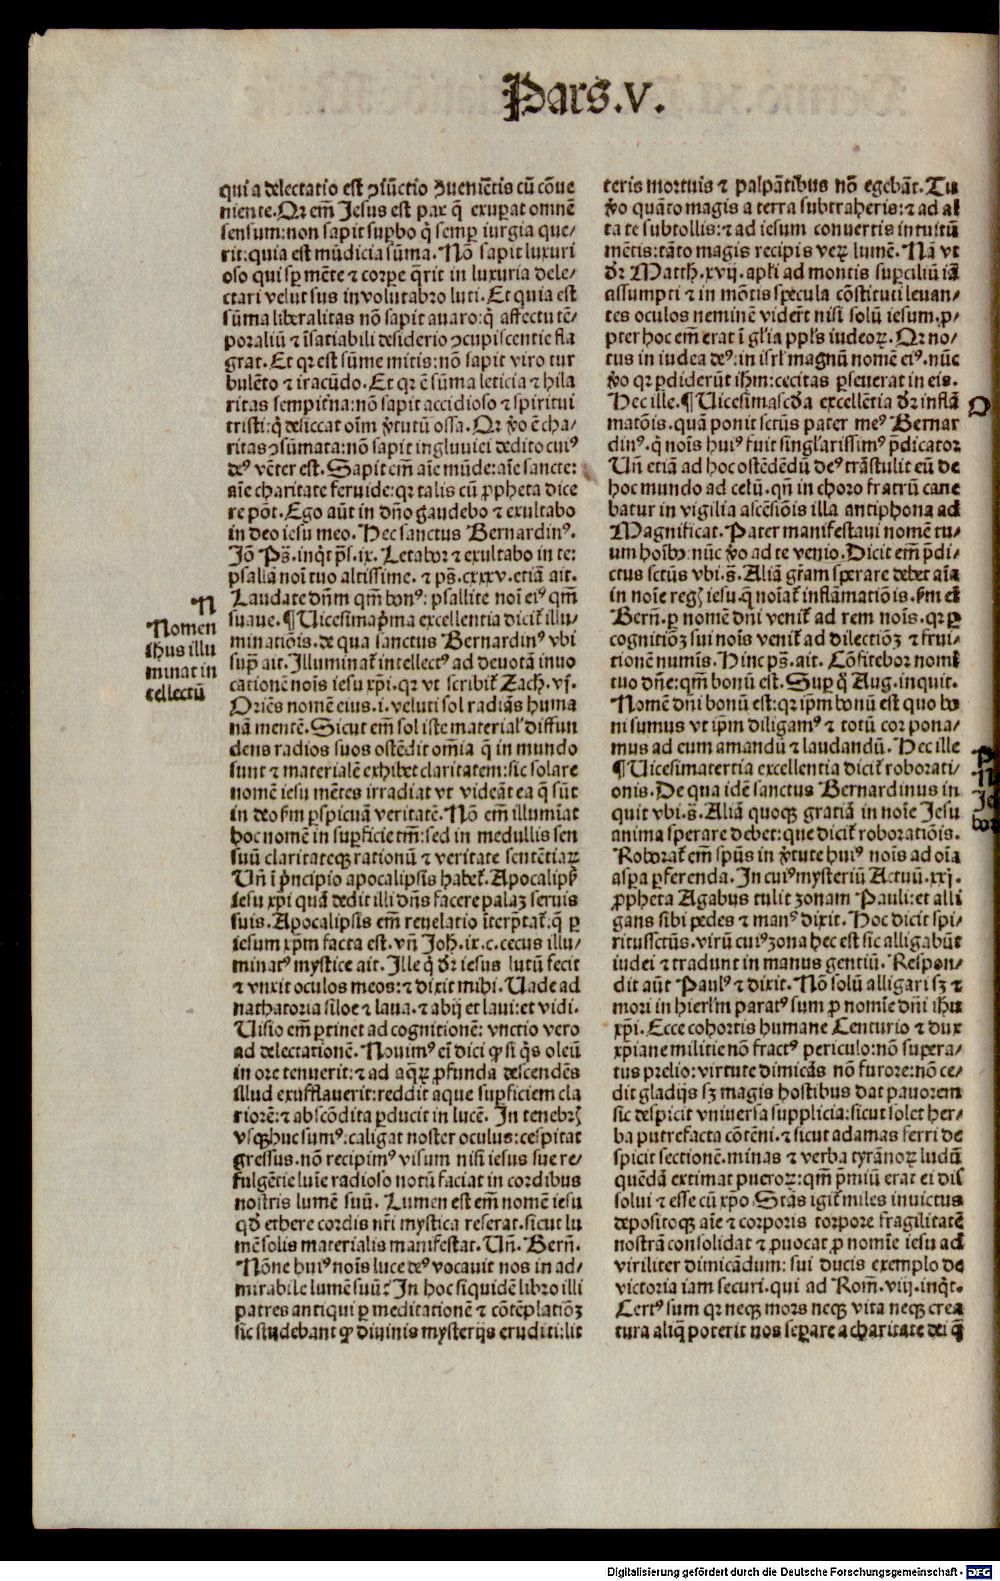 Pars.v.
qui a delectatio est ↄiũctio ↄueniẽtis cũ cõue
niente. Qr em̃ Jesus est pax q̃ exuꝑat omnẽ
sensum: non sapit suꝑbo q̃ semꝑ iurgia que/
rit: quia est mũdicia sũma. Nõ sapit luxuri
oso qui sꝑ mẽte ⁊ corꝑe q̃rit in luxuria dele/
ctari velut sus in volutabro luti. Et quia est
sũma liberalitas nõ sapit auaro: q̃ affectu tẽ/
poraliũ ⁊ ĩsatiabili desiderio ↄcupiscentie fla
grat. Et qr est sũme mitis: nõ sapit viro tur
bulẽto ⁊ iracũdo. Et qr ẽ sũma leticia ⁊ hila
ritas sempit̃na: nõ sapit accidioso ⁊ spiritui
tristi: q̃ desiccat oĩm v̓tutũ ossa. Qr v̓o ẽ cha/
ritas ↄsũmata: nõ sapit ingluuiei dedito cuiꝰ
deꝰ vẽter est. Sapit em̃ aĩe mũde: aĩe sancte:
aĩe charitate feruide: qr talis cũ ꝓpheta dice
re põt. Ego aũt in dño gaudebo ⁊ exultabo
in deo iesu meo. Hec sanctus Bernardinꝰ.
Jõ Ps̃. inq̓t ps̃. ix. Letabor ⁊ exultabo in te:
psallã noĩ tuo altissime. ⁊ ps̃. cxxxv. etiã ait.
Laudate dñm qm̃ bonꝰ: psallite noĩ eiꝰ qm̃
suaue. ¶ Uicesimap̓ma excellentia dicit̃ illu/
minatiõis. de qua sanctus Bernardinꝰ vbi
suꝑ̃ ait. Illuminat̃ intellectꝰ ad deuotã inuo
cationẽ noĩs iesu xp̃i. qr vt scribit̃ Zach. vj.
Oriẽs nomẽ eius. i. veluti sol radiãs huma
nã mentẽ. Sicut em̃ sol iste materialꝭ diffun
dens radios suos ostẽdit om̃ia q̃ in mundo
sunt ⁊ materialẽ exhibet claritatem: sic solare
nomẽ iesu mẽtes irradiat vt videãt ea q̃ sũt
in deo ẜm ꝑspicuã veritatẽ. Nõ em̃ illumĩat
hoc nomẽ in suꝑficie tm̃: sed in medullis sen
suũ claritateqꝫ rationũ ⁊ veritate sentẽtiaꝝ
Uñ ĩ p̓ncipio apocalipsis habet̃. Apocalipsꝭ
iesu xp̃i quã dedit illi dñs facere palaꝫ seruis
suis. Apocalipsis em̃ reuelatio ĩterp̃tat̃: q̃ ꝑ
iesum xp̃m facta est. vñ Joh̃. ix. c. cecus illu/
minatꝰ mystice ait. Ille q̓ dr̃ iesus lutũ fecit
⁊ vnxit oculos meos: ⁊ dixit mihi. Uade ad
nathatoria siloe ⁊ laua. ⁊ abij et laui: et vidi.
Uisio em̃ ꝑtinet ad cognitionẽ: vnctio vero
ad delectationẽ. Nouimꝰ eĩ dici ꝙ si q̓s oleũ
in ore tenuerit: ⁊ ad aq̃ꝝ ꝓfunda descendẽs
illud exufflauerit: reddit aque suꝑficiem cla
riorẽ: ⁊ abscõdita ꝑducit in lucẽ. In tenebrꝭ
vsqꝫ huc sumꝰ: caligat noster oculus: cespitat
gressus. nõ recipimꝰ visum nisi iesus sue re/
fulgẽtie luĩe radioso notũ faciat in cordibus
nostris lumẽ suũ. Lumen est em̃ nomẽ iesu
qd̓ ethere cordis nr̃i mystica reserat. sicut lu
mẽ solis materialis manifestat. Uñ. Berñ.
Nõne huiꝰ noĩs luce deꝰ vocauit nos in ad/
mirabile lumẽ suũ? In hoc siquidẽ libro illi
patres antiqui ꝑ meditationẽ ⁊ cõtẽplatiõꝫ
sic studebant ꝙ diuinis mysterijs eruditi: lit
N
Nomen
ihus illu
minat in
tellectũ
teris mortuis ⁊ palpãtibus nõ egebãt. Tu
v̓o quãto magis a terra subtraheris: ⁊ ad al
ta te subtollis: ⁊ ad iesum conuertis intuitũ
mẽtis: tãto magis recipis veꝝ lumẽ. Nã vt
dr̃ Matth. xvij. apl̃i ad montis suꝑciliũ iã
assumpti ⁊ in mõtis specula cõstituti leuan/
tes oculos neminẽ vidert̃ nisi solũ iesum. ꝓ/
pter hoc em̃ erat ĩ gl̃ia ppl̃s iudeoꝝ. Qr no/
tus in iudea deꝰ: in isrl̃ magnũ nomẽ eiꝰ. nũc
v̓o qr ꝑdiderũt ihm̃: cecitas ꝑseuerat in eis.
Hec ille. ¶ Uicesimasc̃da excellẽtia dr̃ inflã
matõis. quã ponit sctũs pater meꝰ Bernar
dinꝰ. q̓ noĩs huiꝰ fuit singl̃arissimꝰ p̃dicator
Uñ etiã ad hoc ostẽdẽdũ deꝰ trãstulit eũ de
hoc mundo ad celũ. qñ in choro fratrũ cane
batur in vigilia ascẽsiõis illa antiphona ad
Magnificat. Pater manifestaui nomẽ tu/
um hoĩbꝫ: nũc v̓o ad te venio. Dicit em̃ p̃di/
ctus sctũs vbi. s̃. Aliã gr̃am sperare debet aĩa
in noĩe regꝭ iesu. q̃ noĩat̃ inflãmatiõis. ẜm eĩ
Berñ. ꝑ nomẽ dñi venit̃ ad rem noĩs. qr ꝑ
cognitiõꝫ sui noĩs venit̃ ad dilectiõꝫ ⁊ frui/
tionẽ numĩs. Hinc ps̃. ait. Cõfitebor nomĩ
tuo dñe: qm̃ bonũ est. Suꝑ q̓ Aug. inquit.
Nomẽ dñi bonũ est: qr ip̃m bonũ est quo bo
ni sumus vt ip̃m diligamꝰ ⁊ totũ cor pona/
mus ad eum amandũ ⁊ laudandũ. Hec ille
¶ Uicesimatertia excellentia dicit̃ roborati/
onis. De qua idẽ sanctus Bernardinus in
quit vbi. s̃. Aliã quoqꝫ gratiã in noĩe Jesu
anima sperare debet: que dicit̃ roboratiõis.
Roborat̃ em̃ spũs in v̓tute huiꝰ noĩs ad oĩa
asꝑa ꝑferenda. In cuiꝰ mysteriũ Actuũ. xxj.
ꝓpheta Agabus tulit zonam Pauli: et alli
gans sibi pedes ⁊ manꝰ dixit. Hoc dicit spi/
ritussctũs. virũ cuiꝰ zona hec est sic alligabũt
iudei ⁊ tradunt in manus gentiũ. Respon/
dit aũt Paulꝰ ⁊ dixit. Nõ solũ alligari sꝫ ⁊
mori in hierlm̃ paratꝰ sum ꝓ nomĩe dñi ihũ
xp̃i. Ecce cohortis humane Centurio ⁊ dux
xp̃iane militie nõ fractꝰ periculo: nõ supera/
tus prelio: virtute dimicãs nõ furore: nõ ce/
dit gladijs sꝫ magis hostibus dat pauorem
sic despicit vniuersa supplicia: sicut solet her/
ba putrefacta cõtẽni. ⁊ sicut adamas ferri de
spicit sectionẽ. minas ⁊ verba tyrãnoꝝ ludũ
quẽdã extimat pueroꝝ: qm̃ p̓miũ erat ei dis
solui ⁊ esse cũ xp̃o. Stãs igit̃ miles inuictus
depositoqꝫ aĩe ⁊ corporis torpore fragilitatẽ
nostrã consolidat ⁊ ꝓuocat ꝓ nomĩe iesu ad
viriliter dimicãdum: sui ducis exemplo de
victoria iam securi. qui ad Rom̃. viij. inq̓t.
Certꝰ sum qr neqꝫ mors neqꝫ vita neqꝫ crea
tura aliq̃ poterit nos seꝑare a charitate dei q̃
O
Digitalisierung gefördert durch die Deutsche Forschungsgemeinschaft - DFG